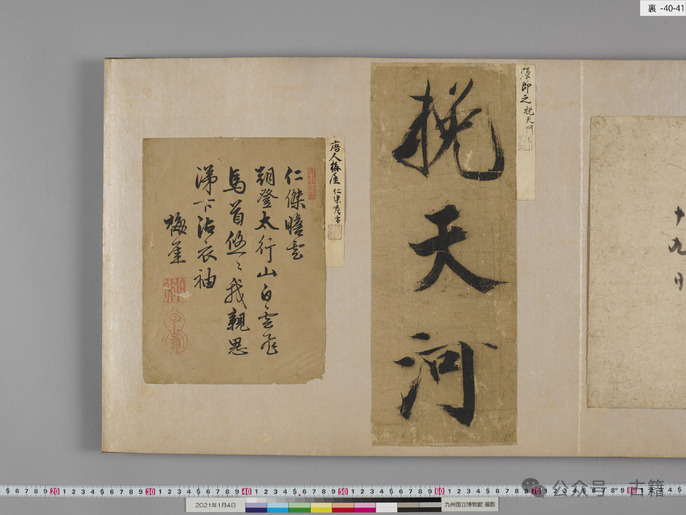 裏 -40-41
十九日
張即之 挽天河
挽天河
唐人梅屋
仁傑瞻雲
朝登太行山白雲飛
馬首悠〻我親思
涕下沾衣袖
梅屋
2021年1月4日
九州国立博物館 撮影
公众号 · 古籍